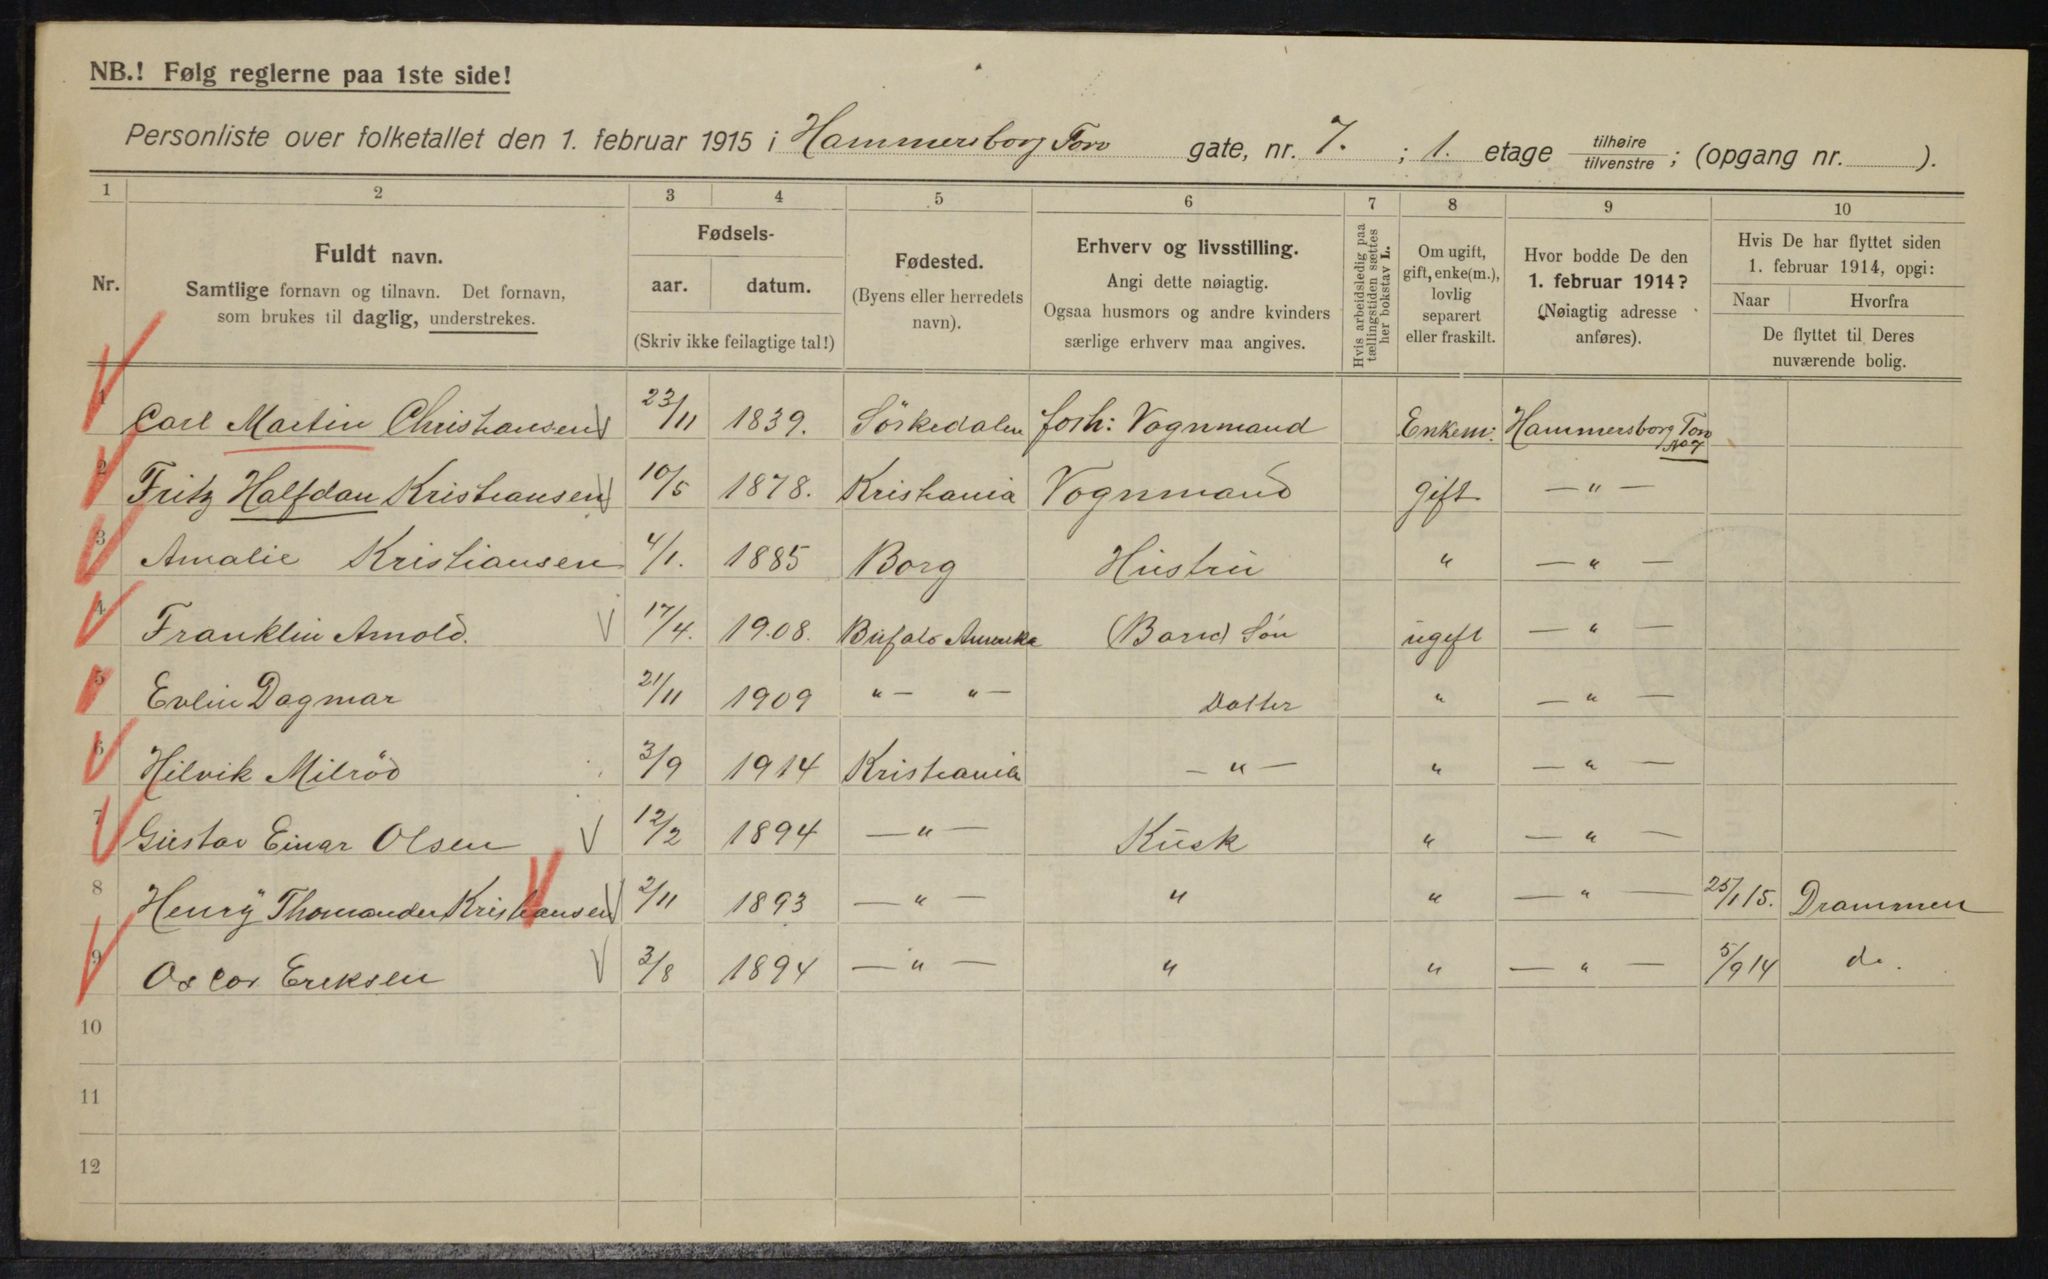 NB.! Følg reglerne paa 1ste side!
Personliste over folketallet den 1. februar 1915 i Hammersborg Torv gate, nr. 7. ; 1. etage tilhøire / tilvenstre ; (opgang nr. ).
1 2 3 4 5 6 7 8 9 10
Nr. Fuldt navn. Samtlige fornavn og tilnavn. Det fornavn, som brukes til daglig, understrekes.
Fødsels- aar. datum. (Skriv ikke feilagtige tal!)
Fødested. (Byens eller herredets navn).
Erhverv og livsstilling. Angi dette nøiagtig. Ogsaa husmors og andre kvinders særlige erhverv maa angives.
Hvis arbeidsledig paa tællingstiden sættes her bokstav L.
Om ugift, gift, enke(m.), lovlig separert eller fraskilt.
Hvor bodde De den 1. februar 1914? (Nøiagtig adresse anføres).
Hvis De har flyttet siden 1. februar 1914, opgi: Naar Hvorfra De flyttet til Deres nuværende bolig.
1 Carl Martin Christiansen 23/11 1839. Sörkedalen forh: Vognmand Enkem: Hammersborg Torv No 7
2 Fritz Halfdan Kristiansen 10/5 1878. Kristiania Vognmand gift — " —
3 Amalie Kristiansen 4/1. 1885 Borg Hustru " — " —
4 Franklin Arnold. 17/4. 19.08. Bufalo Amerika (Barn) Søn ugift — " —
5 Evlin Dagmar 21/11 1909 " — " — Datter " — " —
6 Hilvik Milrød 3/9 1914 Kristiania — " — " — " —
7 Gustav Einar Olsen 12/2 1894 — " — Kusk " — " —
8 Henry Thomander Kristiansen 2/11 1893 — " — " " — " — 25/1 15. Drammen
9 Oscar Eriksen 3/8 1894 — " — " " — " — 5/9 14 do.
10
11
12